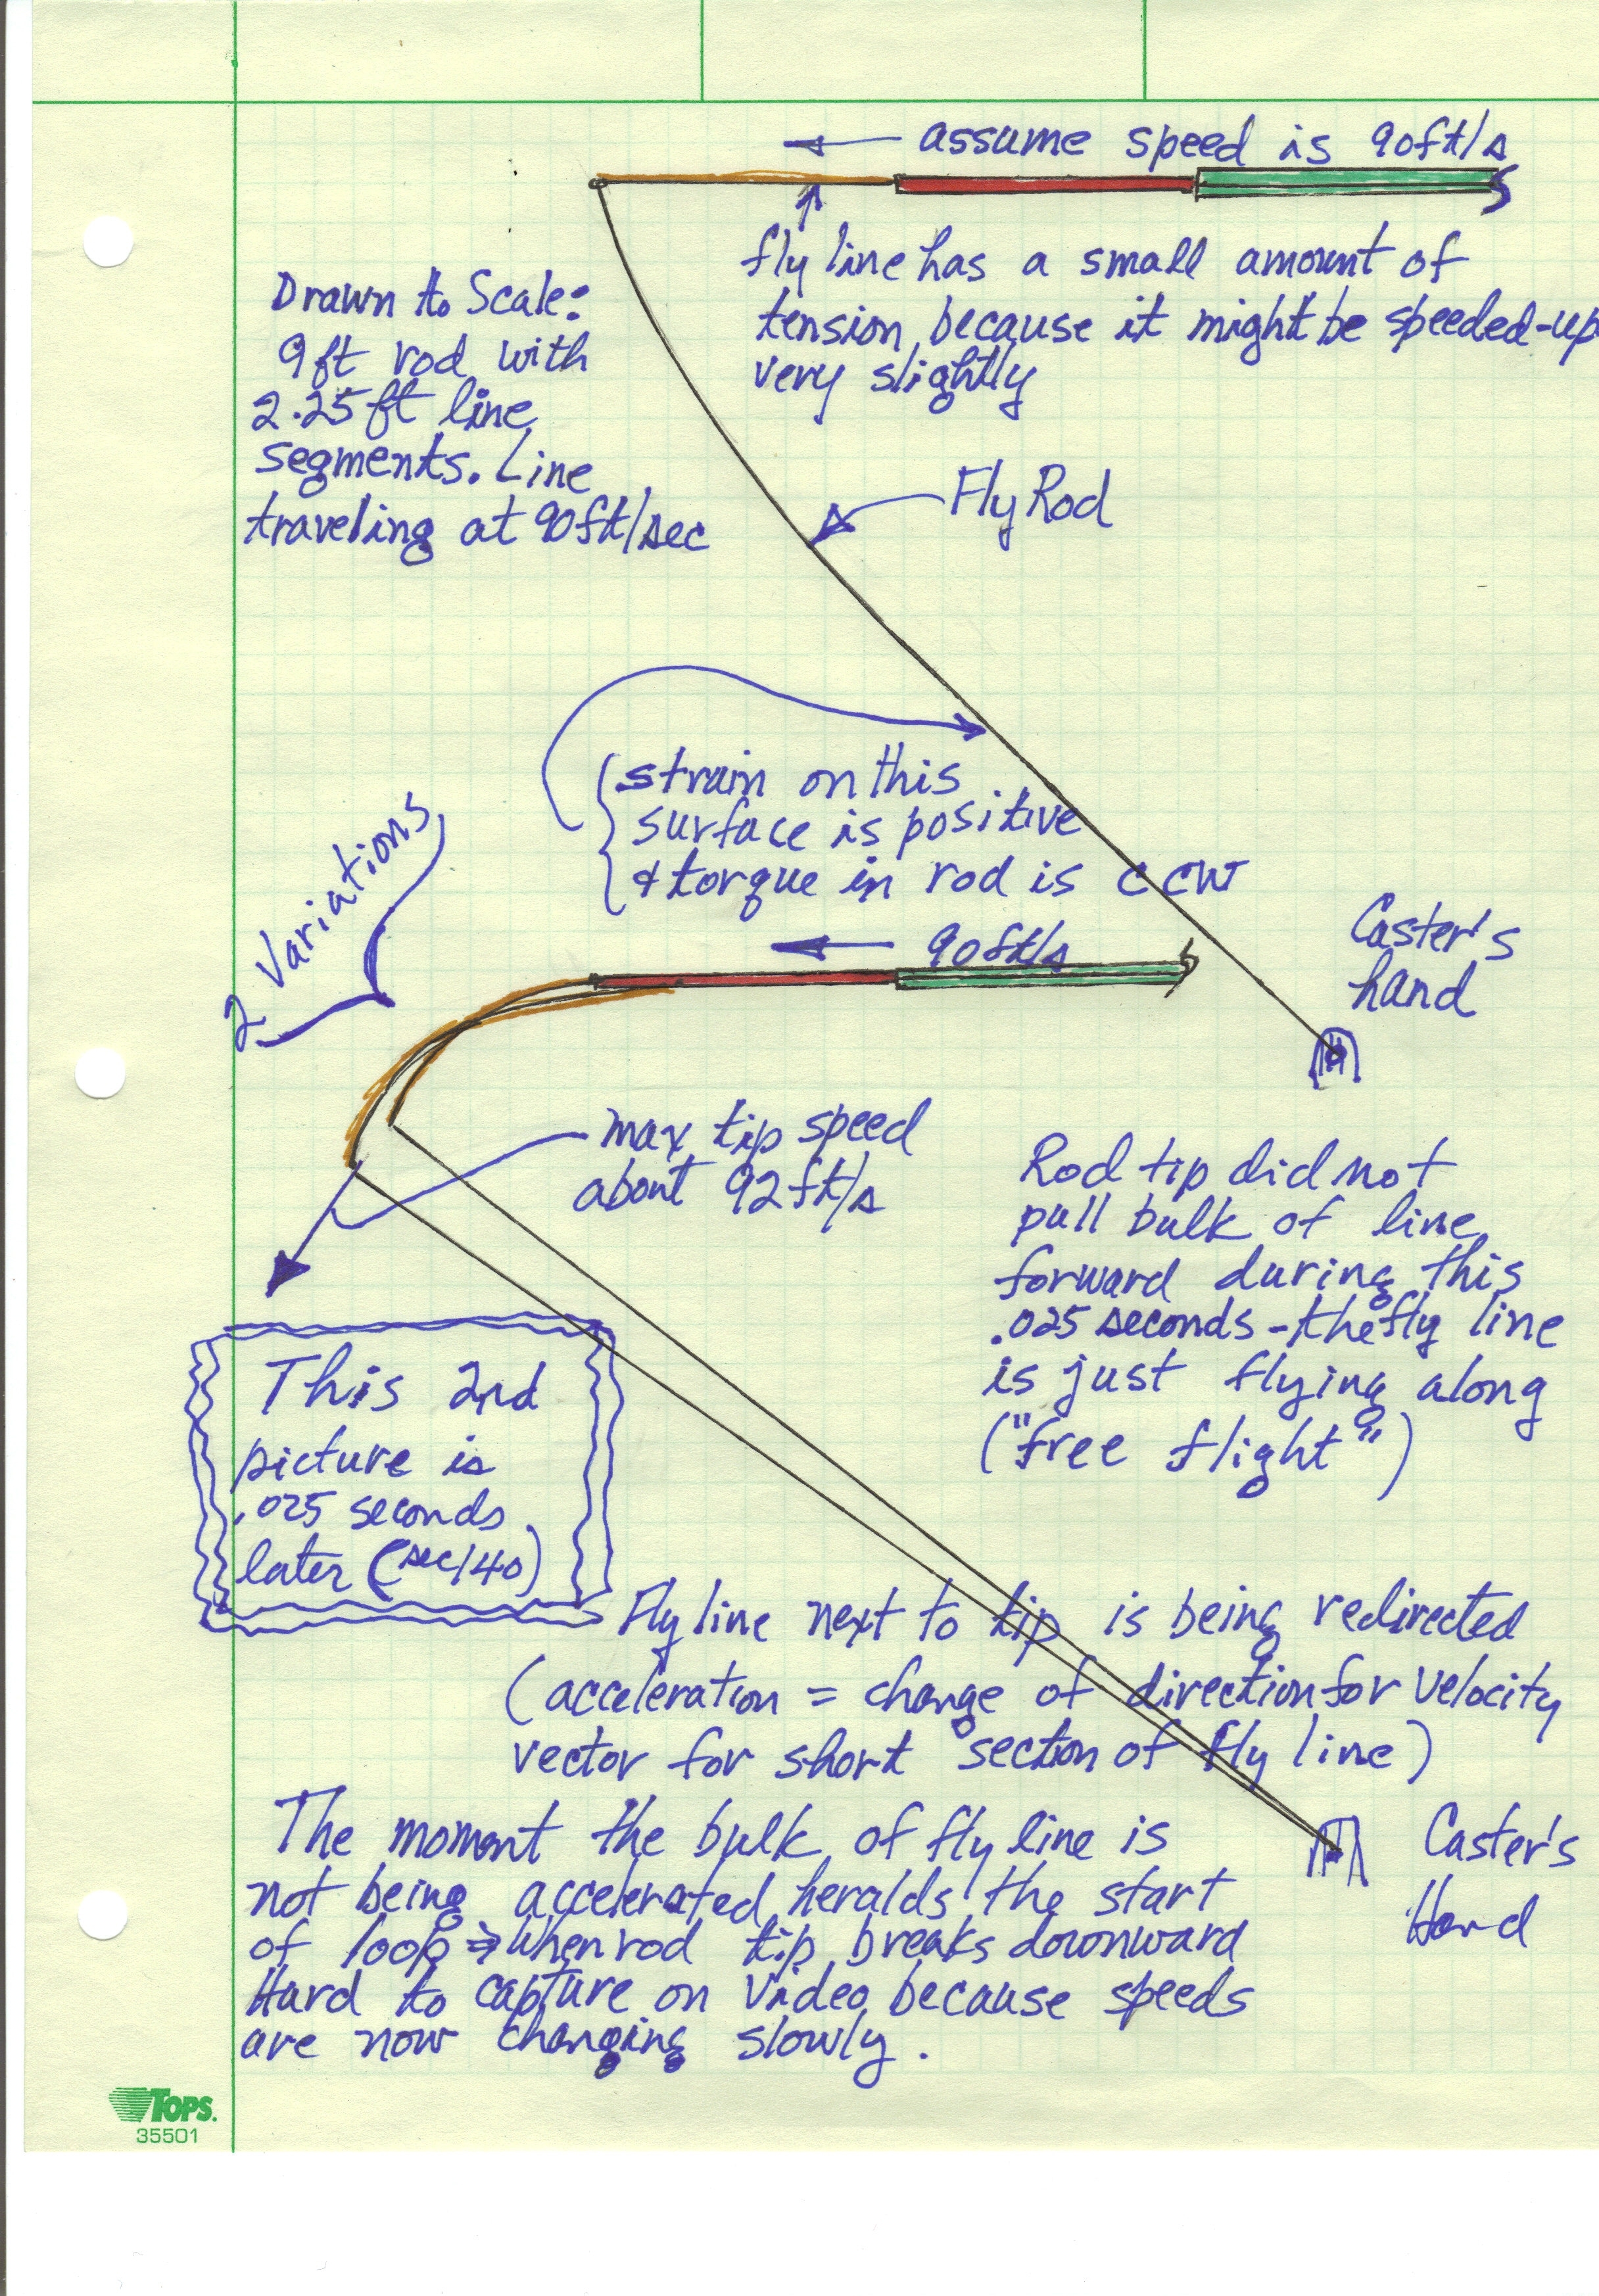 assume speed is 90ft/s
fly line has a small amount of
tension because it might be speeded-up
very slightly
Drawn to Scale:
9ft rod with
2.25ft line
segments. Line
traveling at 90ft/sec
Fly Rod
strain on this
surface is positive
& torque in rod is CCW
2 Variations
90ft/s
Caster's
hand
max tip speed
about 92ft/s
Rod tip did not
pull bulk of line
forward during this
.025 seconds - the fly line
is just flying along
("free flight")
This 2nd
picture is
.025 seconds
later (sec/40)
Fly line next to tip is being redirected
(acceleration = change of direction for velocity
vector for short section of fly line)
The moment the bulk of fly line is
not being accelerated heralds the start
of loop ⇒ when rod tip breaks downward
Hard to capture on video because speeds
are now changing slowly.
Caster's
Hand
TOPS.
35501